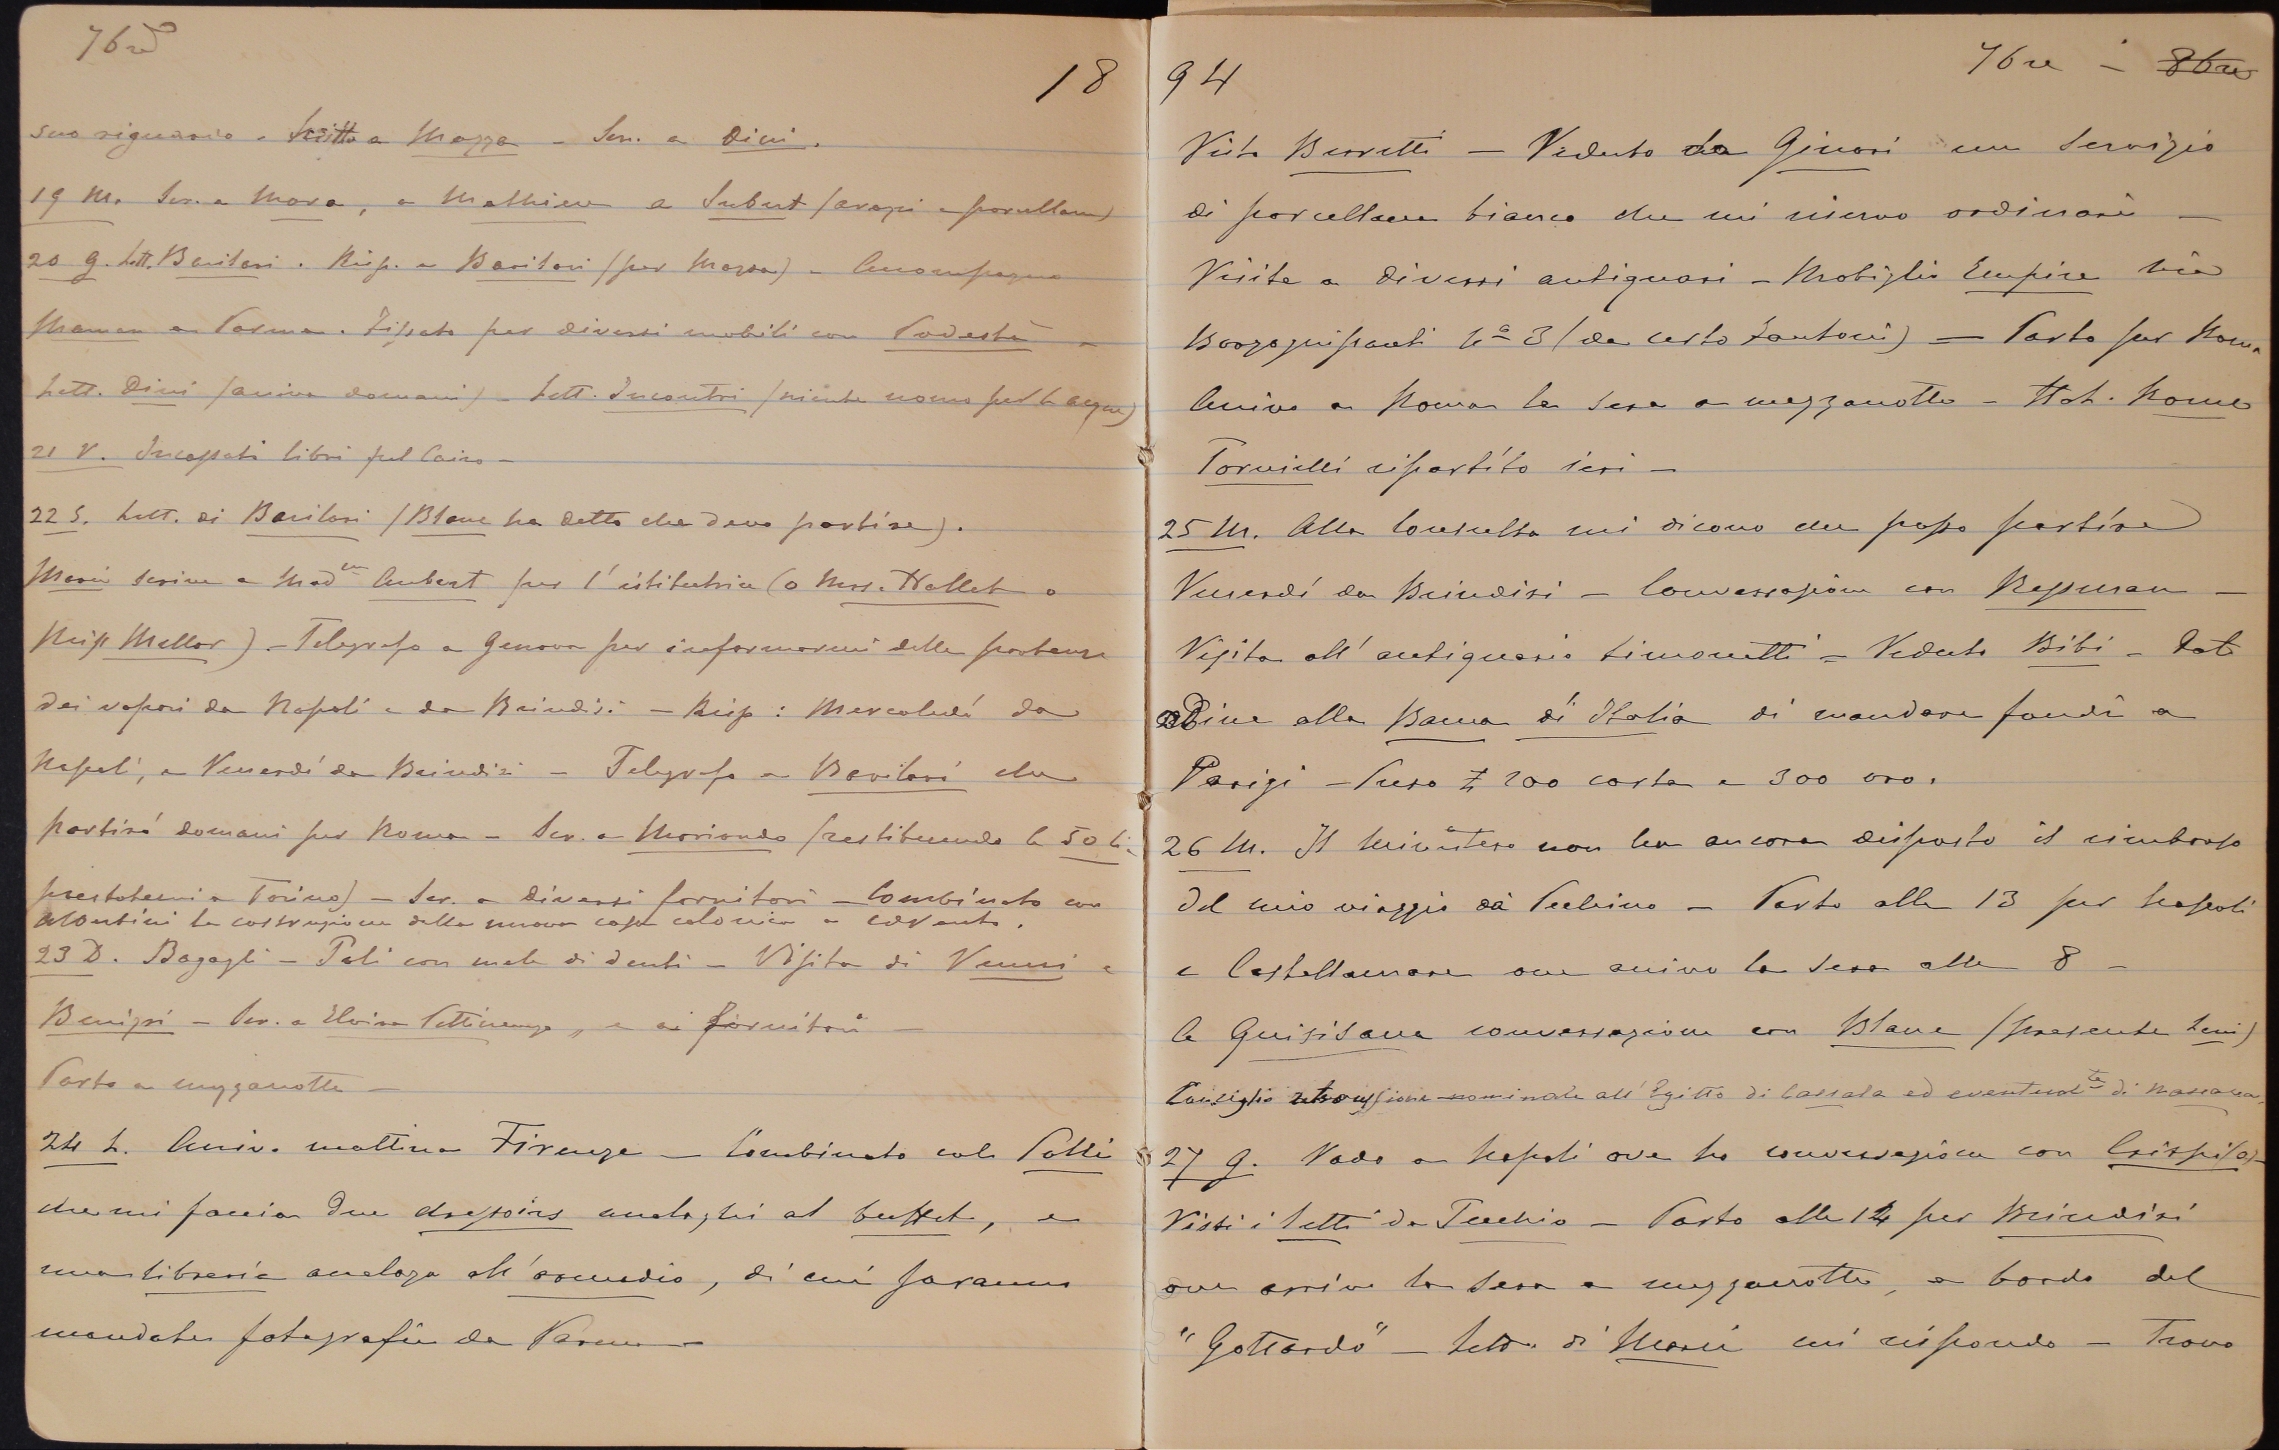 76re
18
suo riguardo - Scritto a Mazza - Scr. a Dini.
19 M. Scr. a Mora, a Mathieu a Subert (arazzi e porcellane)
20 G. Lett. Barilari. Risp. a Barilari (per Mazza) - Accompagno
Maman a Parma. Fissato per diversi mobili con Podestà -
Lett. Dini (arriva domani) - Lett. Incontri (niente uomo per le acque)
21 V. Incassati libri pel Cairo -
22 S. Lett. di Barilari (Blanc ha detto che devo partire).
Marie scrive a Mad.me Aubert per l'istitutrice (o Mrs. Hallet o
Miss Mellor) - Telegrafo a Genova per informarmi delle partenze
dei vapori da Napoli e da Brindisi - Risp: Mercoledí da
Napoli, e Venerdí da Brindisi - Telegrafo a Barilari che
partirò domani per Roma - Scr. a Moriondo (restituendo le 50 li.
prestatemi a Torino) - Scr. a diversi fornitori - Combinato con
Montini la costruzione della nuova casa colonica a
23 D. Bagagli - Poli con male di denti - Visita di Vanni e
Benigni - Scr. a Elvira Pettinengo, e ai fornitori -
Parto a mezzanotte -
24 L. Arriv. mattina Firenze - Combinato col Polli
che mi faccia due dressoirs analoghi al buffet, e
una libreria analoga all'armadio, di cui saranno
mandate fotografie da Parma -
94
76re - 86re
Visto Berretti - Veduto da Ginori un servizio
di porcellana bianca che mi riservo ordinare -
Visite a diversi antiquari - Mobiglia Empire via
Borgognissanti No 3 (da certo Fantoni) - Parto per Roma
Arrivo a Roma la sera a mezzanotte - Hot. Rome
Tornielli ripartíto ieri -
25 M. Alla Consulta mi dicono che posso partire
Venerdí da Brindisi - Conversazione con Ressman -
Visita all'antiquario Simonetti - Veduto Bibi - Dato
ordine alla Banca di Italia di mandare fondi a
Parigi - Preso £ 200 carta e 300 oro.
26 M. Il Ministero non ha ancora disposto il rimborso
del mio viaggio da Pechino - Parto alle 13 per Napoli
e Castellamare ove arrivo la sera alle 8 -
a Quisisana conversazione con Blanc (presente Leni)
Consiglio retrocessione nominale all'Egitto di Cassala ed eventualte di Massaua.
27 G. Vado a Napoli ove ho conversazione con Crispi (a) -
Visti i Letti da Tecchio - Parto alle 14 per Brindisi
ove arrivo la sera a mezzanotte, a bordo del
"Gottardo" - Lett. di Marie cui rispondo - Trovo